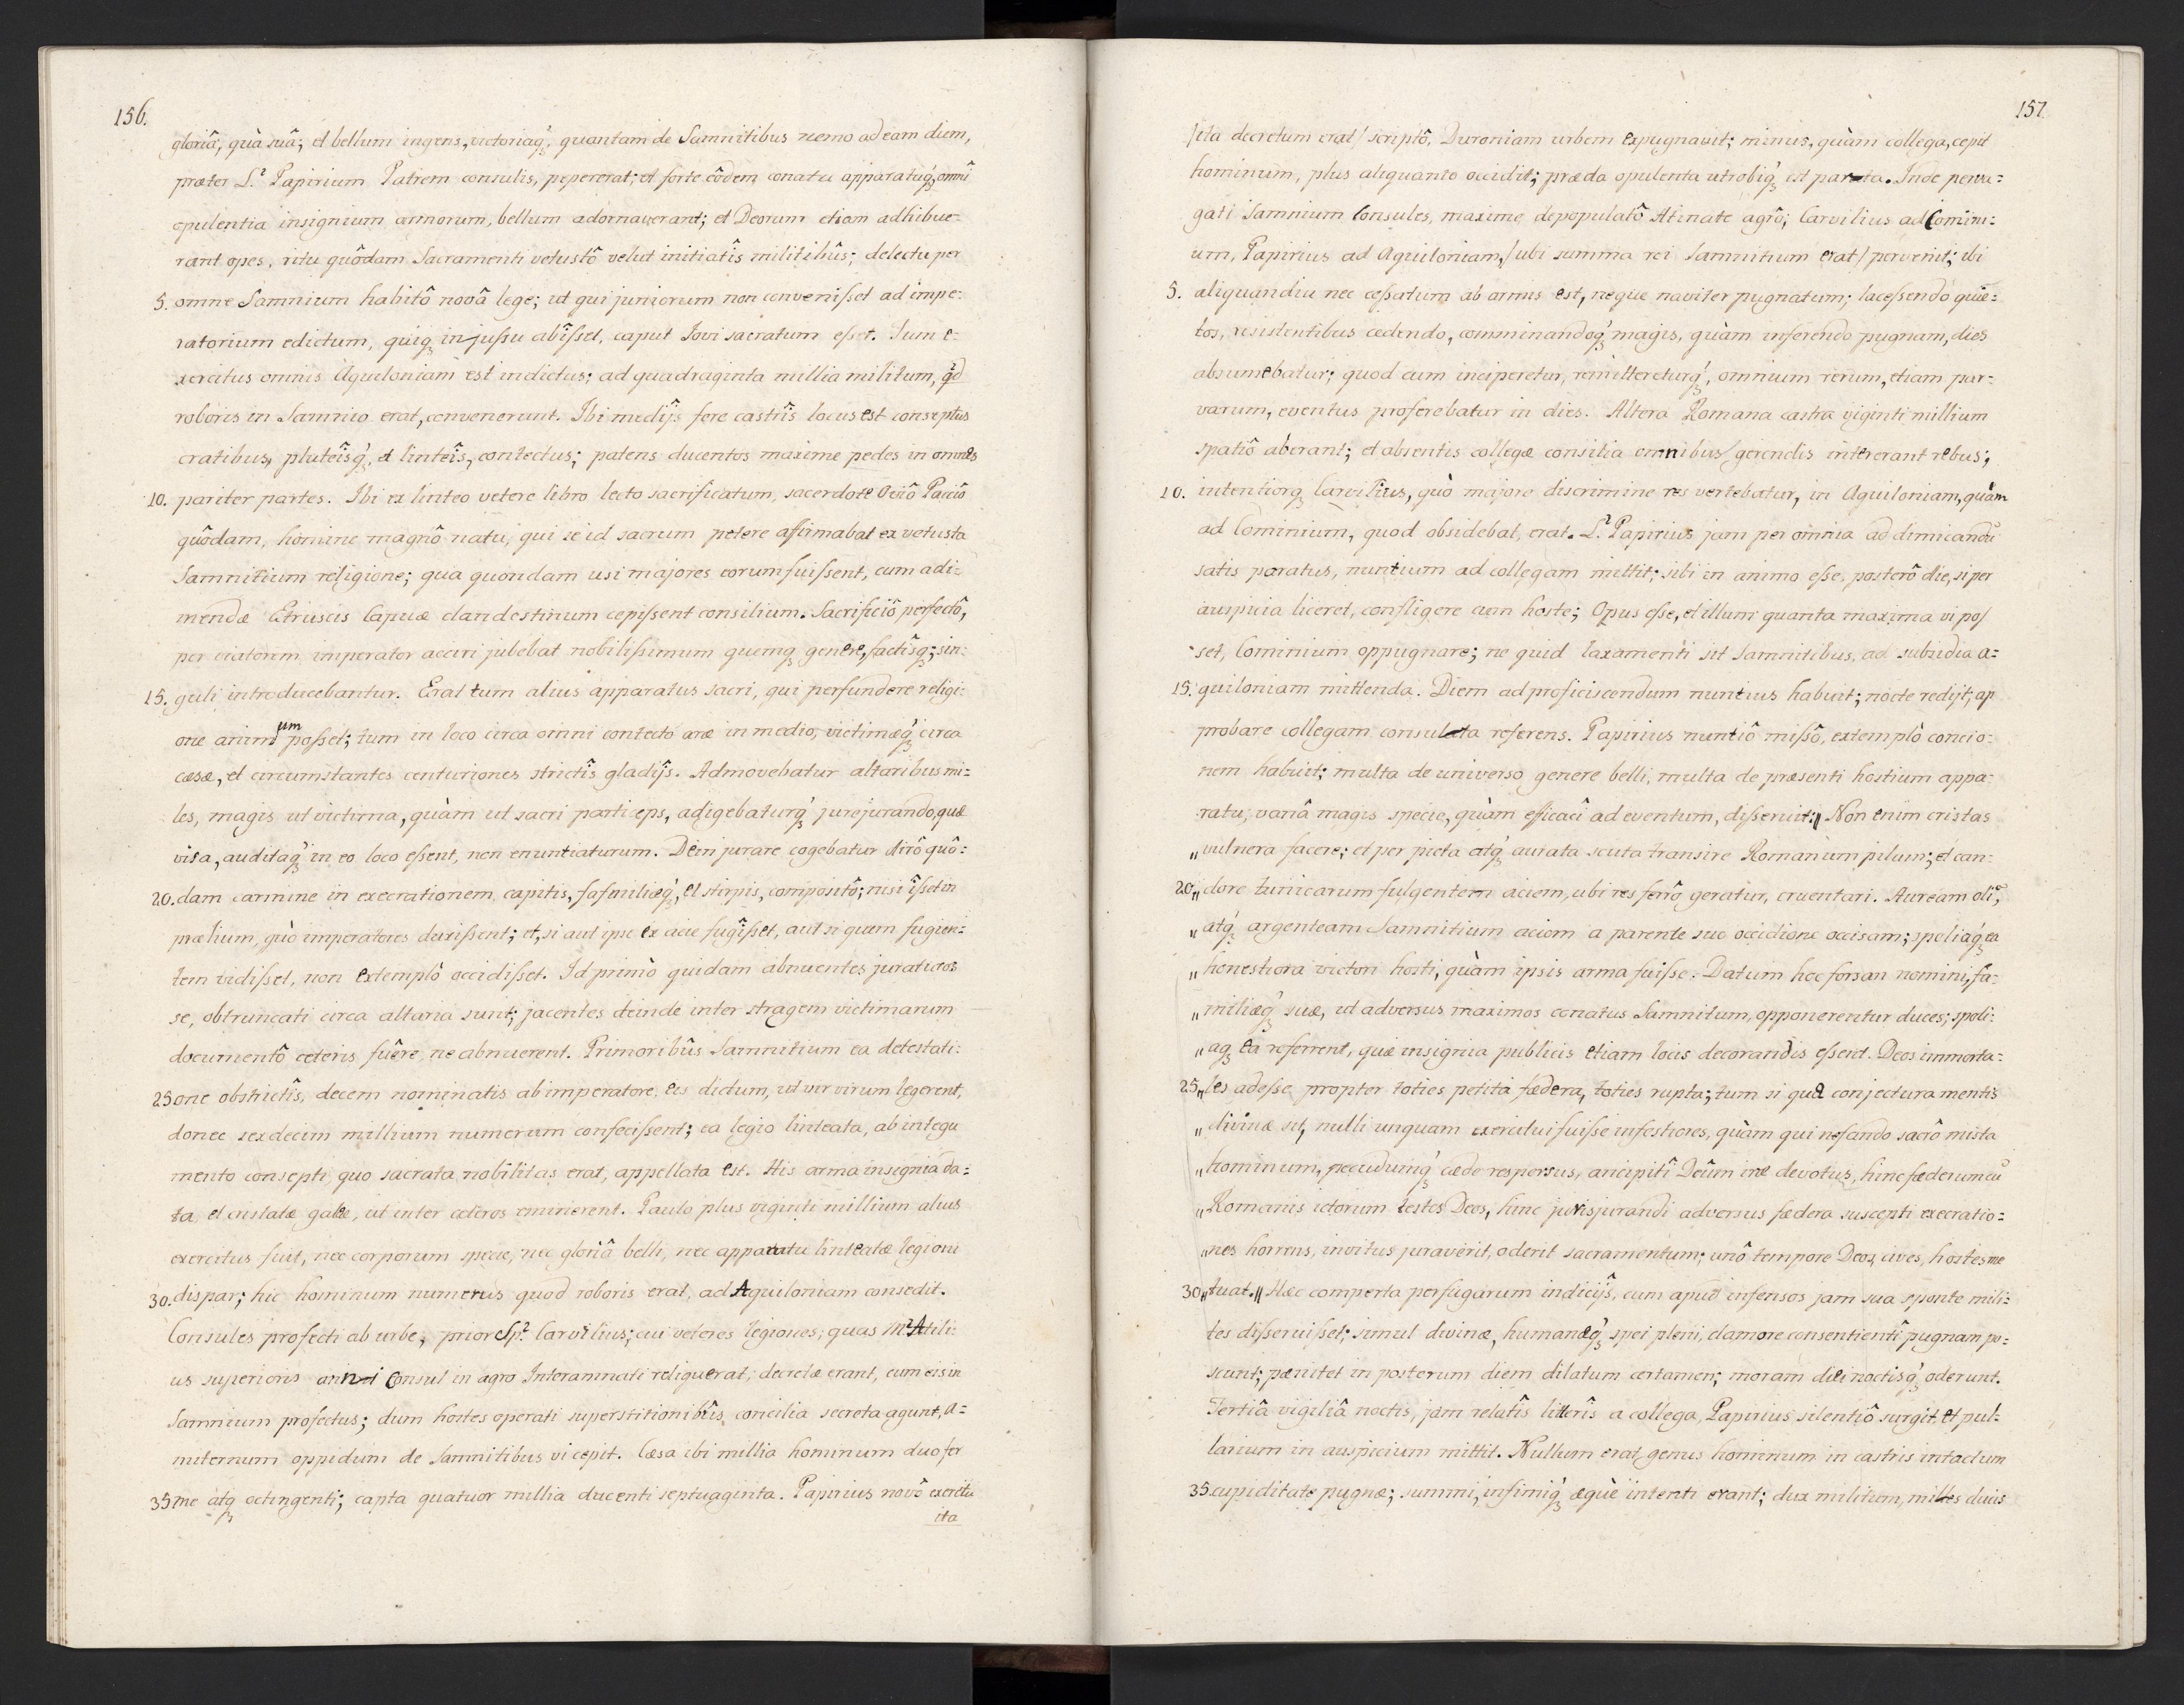 156.
gloriâ, quà suâ; et bellum ingens, victoriaq́, quantam de Samnitibus nemo ad eam diem,
præter L.² Papirium Patrem consulis, pepererat; et forte eôdem conatu apparatuq́, omni
opulentia insignium armorum, bellum adornaverant; et Deorum etiam adhibue-
rant opes, ritu quôdam Sacramenti vetustô velut initiatîs militibûs; delectu per
5. omne Samnium habitô novâ lege; ut qui juniorum non convenisset ad impe-
ratorium edictum, quiq, injussu abîsset, caput Jovi sacratum esset. Tum e-
xercitus omnis Aquiloniam est indictus; ad quadraginta millia militum, qd
roboris in Samnio erat, convenerunt. Ibi medijs fere castrîs locus est conseptus
cratibus, pluteîsq́, et linteîs, contectus; patens ducentos maxime pedes in omnes
10. pariter partes. Ibi ex linteo vetere libro lecto sacrificatum, sacerdote Oviô Pacciô
quôdam, homine magnô natu, qui se id sacrum petere affirmabat ex vetusta
Samnitium religione; qua quondam usi majores eorum fuissent, cum adi-
mendæ Etruscis Capuæ clandestinum cepissent consilium. Sacrificiô perfectô,
per viatorem imperator acciri jubebat nobilissimum quemq genere, factîsq; sin-
15. guli introducebantur. Erat tum alius apparatus sacri, qui perfundere religi-
one animum posset; tum in loco circa omni contectó aræ in medio, victimæq́ circa
cæsæ, et circumstantes centuriones strictîs gladijs. Admovebatur altaribus mi-
les, magis ut victima, quàm ut sacri particeps, adigebaturq́ jurejurando, quæ
visa, auditaq́ in eo loco essent, non enuntiaturum. Dein jurare cogebatur dirô quô-
20. dam carmine in execrationem, capitis, fafmiliæq́, et stirpis, compositô; nisi îsset in
prælium, quò imperatores duxissent; et, si aut ipse ex acie fugîsset, aut si quem fugien-
tem vidisset, non extemplô occidisset. Id primò quidam abnuentes juraturos
se, obtruncati circa altaria sunt; jacentes deinde inter stragem victimarum
documentô ceteris fuêre, ne abnuerent. Primoribûs Samnitium ea detestati-
25 one obstrictîs, decem nominatis ab imperatore, eis dictum, ut vir virum legerent,
donec sexdecim millium numerum confecissent; ea legio linteata, ab integu
mento consepti, quo sacrata nobilitas erat, appellata est. His arma insignia da-
ta, et cristatæ galeæ, ut inter ceteros eminerent. Paulo plus viginti millium alius
exercitus fuit, nec corporum specie, nec gloriâ belli, nec apparatu linteatæ legioni
30. dispar; hic hominum numerus quod roboris erat, ad Aquiloniam consedit.
Consules profecti ab urbe, prior Sp.² Carvilius; cui veteres legiones; quas M² Atili-
us superioris anni Consul in agro Interamnati reliquerat, decretæ erant, cum eis in
Samnium profectus; dum hostes operati superstitionibûs, concilia secreta agunt, A-
miternum oppidum de Samnitibus vi cepit. Cæsa ibi millia hominum duo fer
35 me atq octingenti; capta quatuor millia ducenti septuaginta. Papirius novô exercitu
ita
157.
/ita decretum erat/ scriptô, Duroniam urbem expugnavit; minus, quàm collega, cepit
hominum, plus aliquanto occidit; præda opulenta utrobiq́ est parata. Inde perva-
gati Samnium Consules, maxime depopulatô Atinate agrô; Carvilius ad Comini-
um, Papirius ad Aquiloniam, /ubi summa rei Samnitium erat/ pervenit; ibi
5. aliquandiu nec cessatum ab armis est, neque naviter pugnatum; lacessendo quie-
tos, resistentibus cedendo, comminandoq́ magis, quàm inferendo pugnam, dies
absumebatur; quod cum inciperetur, remittereturq́, omnium rerum, etiam par-
varum, eventus proferebatur in dies. Altera Romana castra viginti millium
spatiô aberant; et absentis collegæ consilia omnibus gerendis intererant rebus;
10. intentiorq Carvilius, quò majore discrimine res vertebatur, in Aquiloniam, quàm
ad Cominium, quod obsidebat, erat. L.² Papirius jam per omnia ad dimicandū
satis paratus, nuntium ad collegam mittit; sibi in animo esse, posterô die, si per
auspicia liceret, confligere cum hoste; Opus esse, et illum quanta maxima vi pos
set, Cominium oppugnare; ne quid laxamenti sit Samnitibus, ad subsidia A-
15. quiloniam mittenda. Diem ad proficiscendum nuntius habuit; nocte redijt, ap
probare collegam consulta referens. Papirius nuntiô missô, extemplò concio-
nem habuit; multa de universo genere belli, multa de præsenti hostium appa-
ratu, variâ magis specie, quàm efficaci ad eventum, disseruit; „ Non enim cristas
„ vulnera facere; et per picta atq́ aurata scuta transire Romanum pilum; et can-
20. „ dore tunicarum fulgentem aciem, ubi res ferrô geratur, cruentari. Auream oli̅,
„ atq́ argenteam Samnitium aciem a parente suo occidione occisam; spoliaq́ ea
„ honestiora victori hosti, quàm ipsis arma fuisse. Datum hoc forsan nomini, fa-
„ miliæq́ suæ, ut adversus maximos conatus Samnitum, opponerentur duces; spoli-
„ aq ea referrent, quæ insignia publicis etiam locis decorandis essent. Deos immorta-
25 „ les adesse propter toties petita fædera, toties rupta; tum si qua conjectura mentis
„ divinæ sit, nulli unquam exercitui fuisse infestiores, quàm qui nefando sacrô mista
„ hominum, pecudumq́ cæde respersus, ancipitî Deûm iræ devotus, hinc fæderum cū
„ Romanis ictorum testes Deos, hinc jurisjurandi adversus fædera suscepti execratio-
„ nes horrens, invitus juraverit, oderit sacramentum; unô tempore Deos, cives, hostes me
30 „ tuat. „ Hæc comperta perfugarum indicijs, cum apud infensos jam sua sponte mili-
tes disseruisset; simul divinæ, humanæq́ spei pleni, clamore consentientî pugnam po-
scunt; pænitet in posterum diem dilatum certamen; moram diei noctisq́ oderunt.
Tertiâ vigiliâ noctis, jam relatîs litterîs a collega, Papirius silentiô surgit, et pul-
larium in auspicium mittit. Nullum erat genus hominum in castris intactum
35. cupiditate pugnæ; summi, infimiq́ æquè intenti erant; dux militum, miles ducis